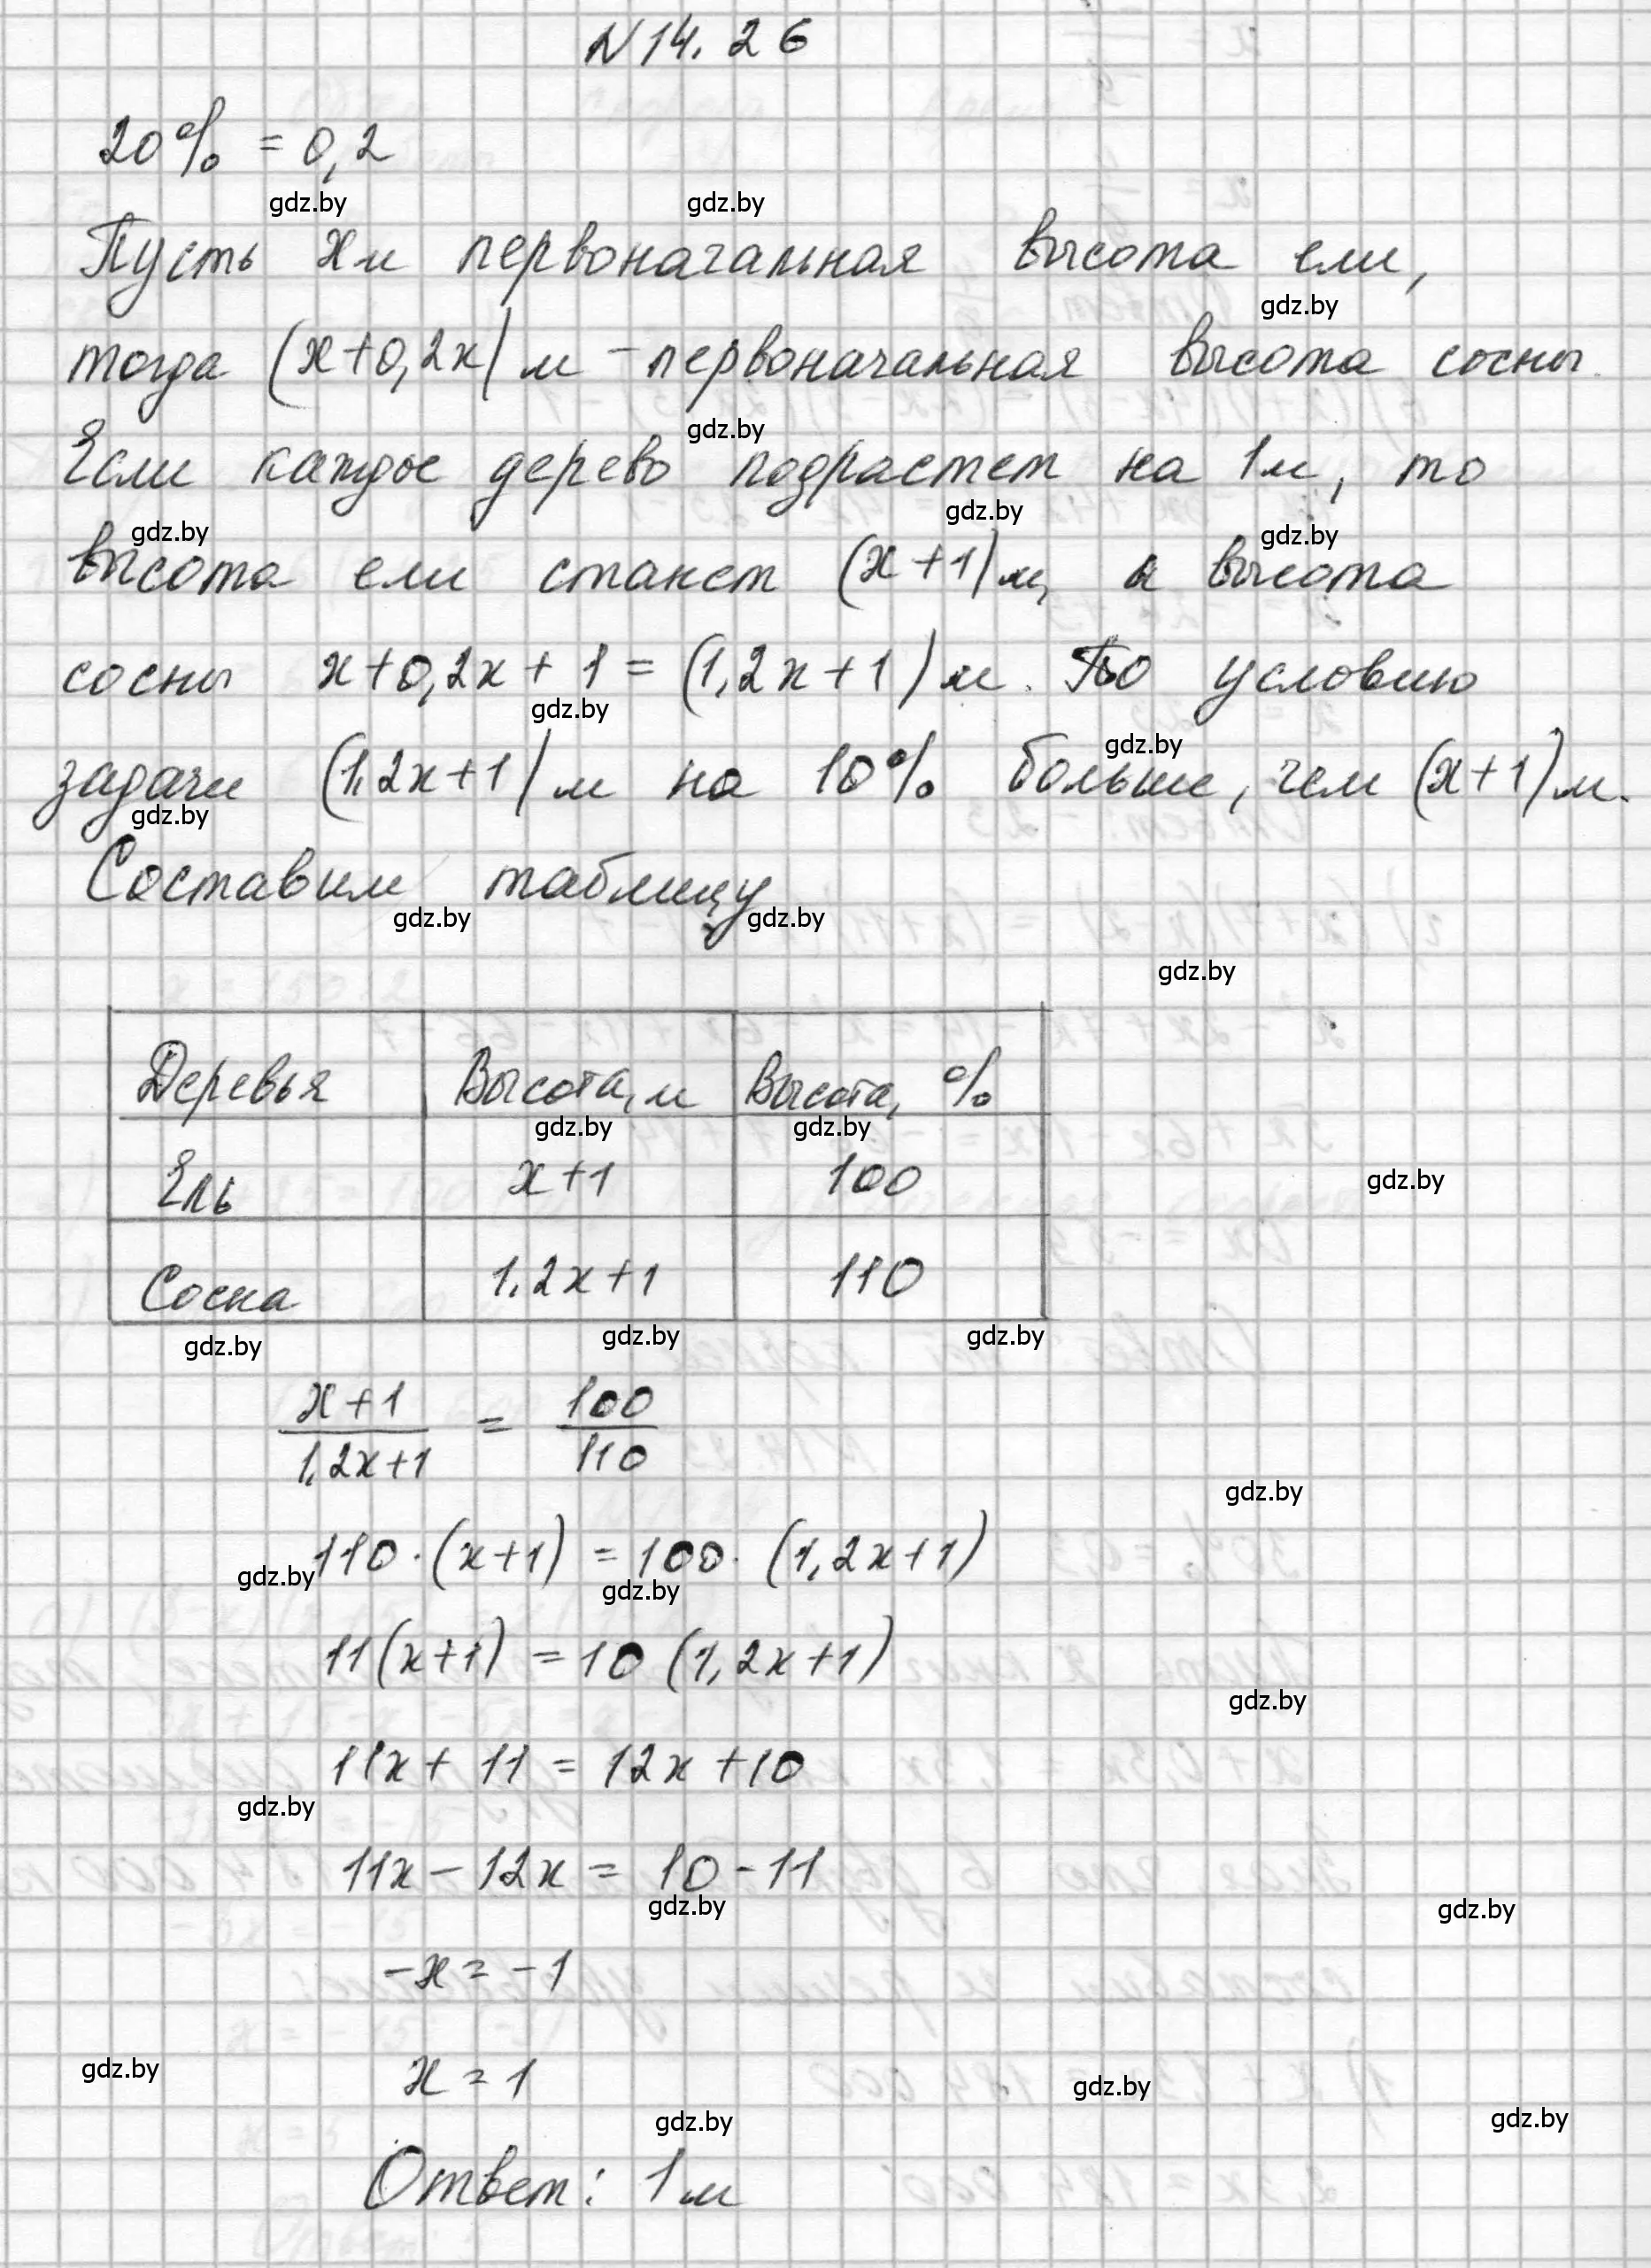 N 14. 26
20% = 0,2
gdz.by gdz.by
Пусть x м первоначальная высота ели,
gdz.by
тогда (x+0,2x) м - первоначальная высота сосны.
gdz.by
Если каждое дерево подрастет на 1м, то
gdz.by gdz.by gdz.by
высота ели станет (x+1) м, а высота
сосны x+0,2x+1 = (1,2x+1) м. По условию
gdz.by gdz.by
задачи (1,2x+1) м на 10% больше, чем (x+1) м.
gdz.by
Составим таблицу
gdz.by gdz.by
gdz.by
Деревья Высота, м Высота, %
gdz.by gdz.by
Ель x+1 100
gdz.by
Сосна 1,2x+1 110
gdz.by gdz.by gdz.by
x+1 / 1,2x+1 = 100 / 110
gdz.by
110·(x+1) = 100·(1,2x+1)
gdz.by gdz.by
11(x+1) = 10 (1,2x+1)
gdz.by
11x + 11 = 12x + 10
gdz.by
11x - 12x = 10 - 11
gdz.by gdz.by
-x = -1
x = 1
gdz.by gdz.by
gdz.by gdz.by
Ответ: 1 м